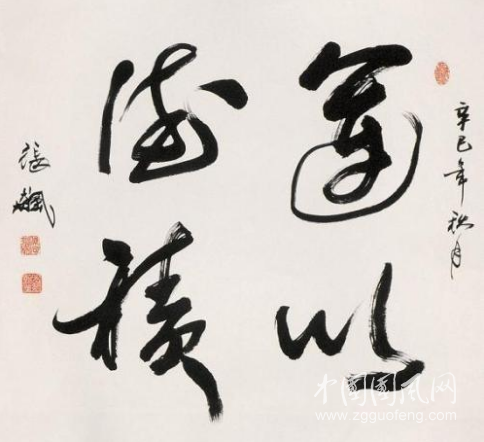 辛巳年秋月
道以
德積
張飆
中國國风网
www.zgguofeng.com